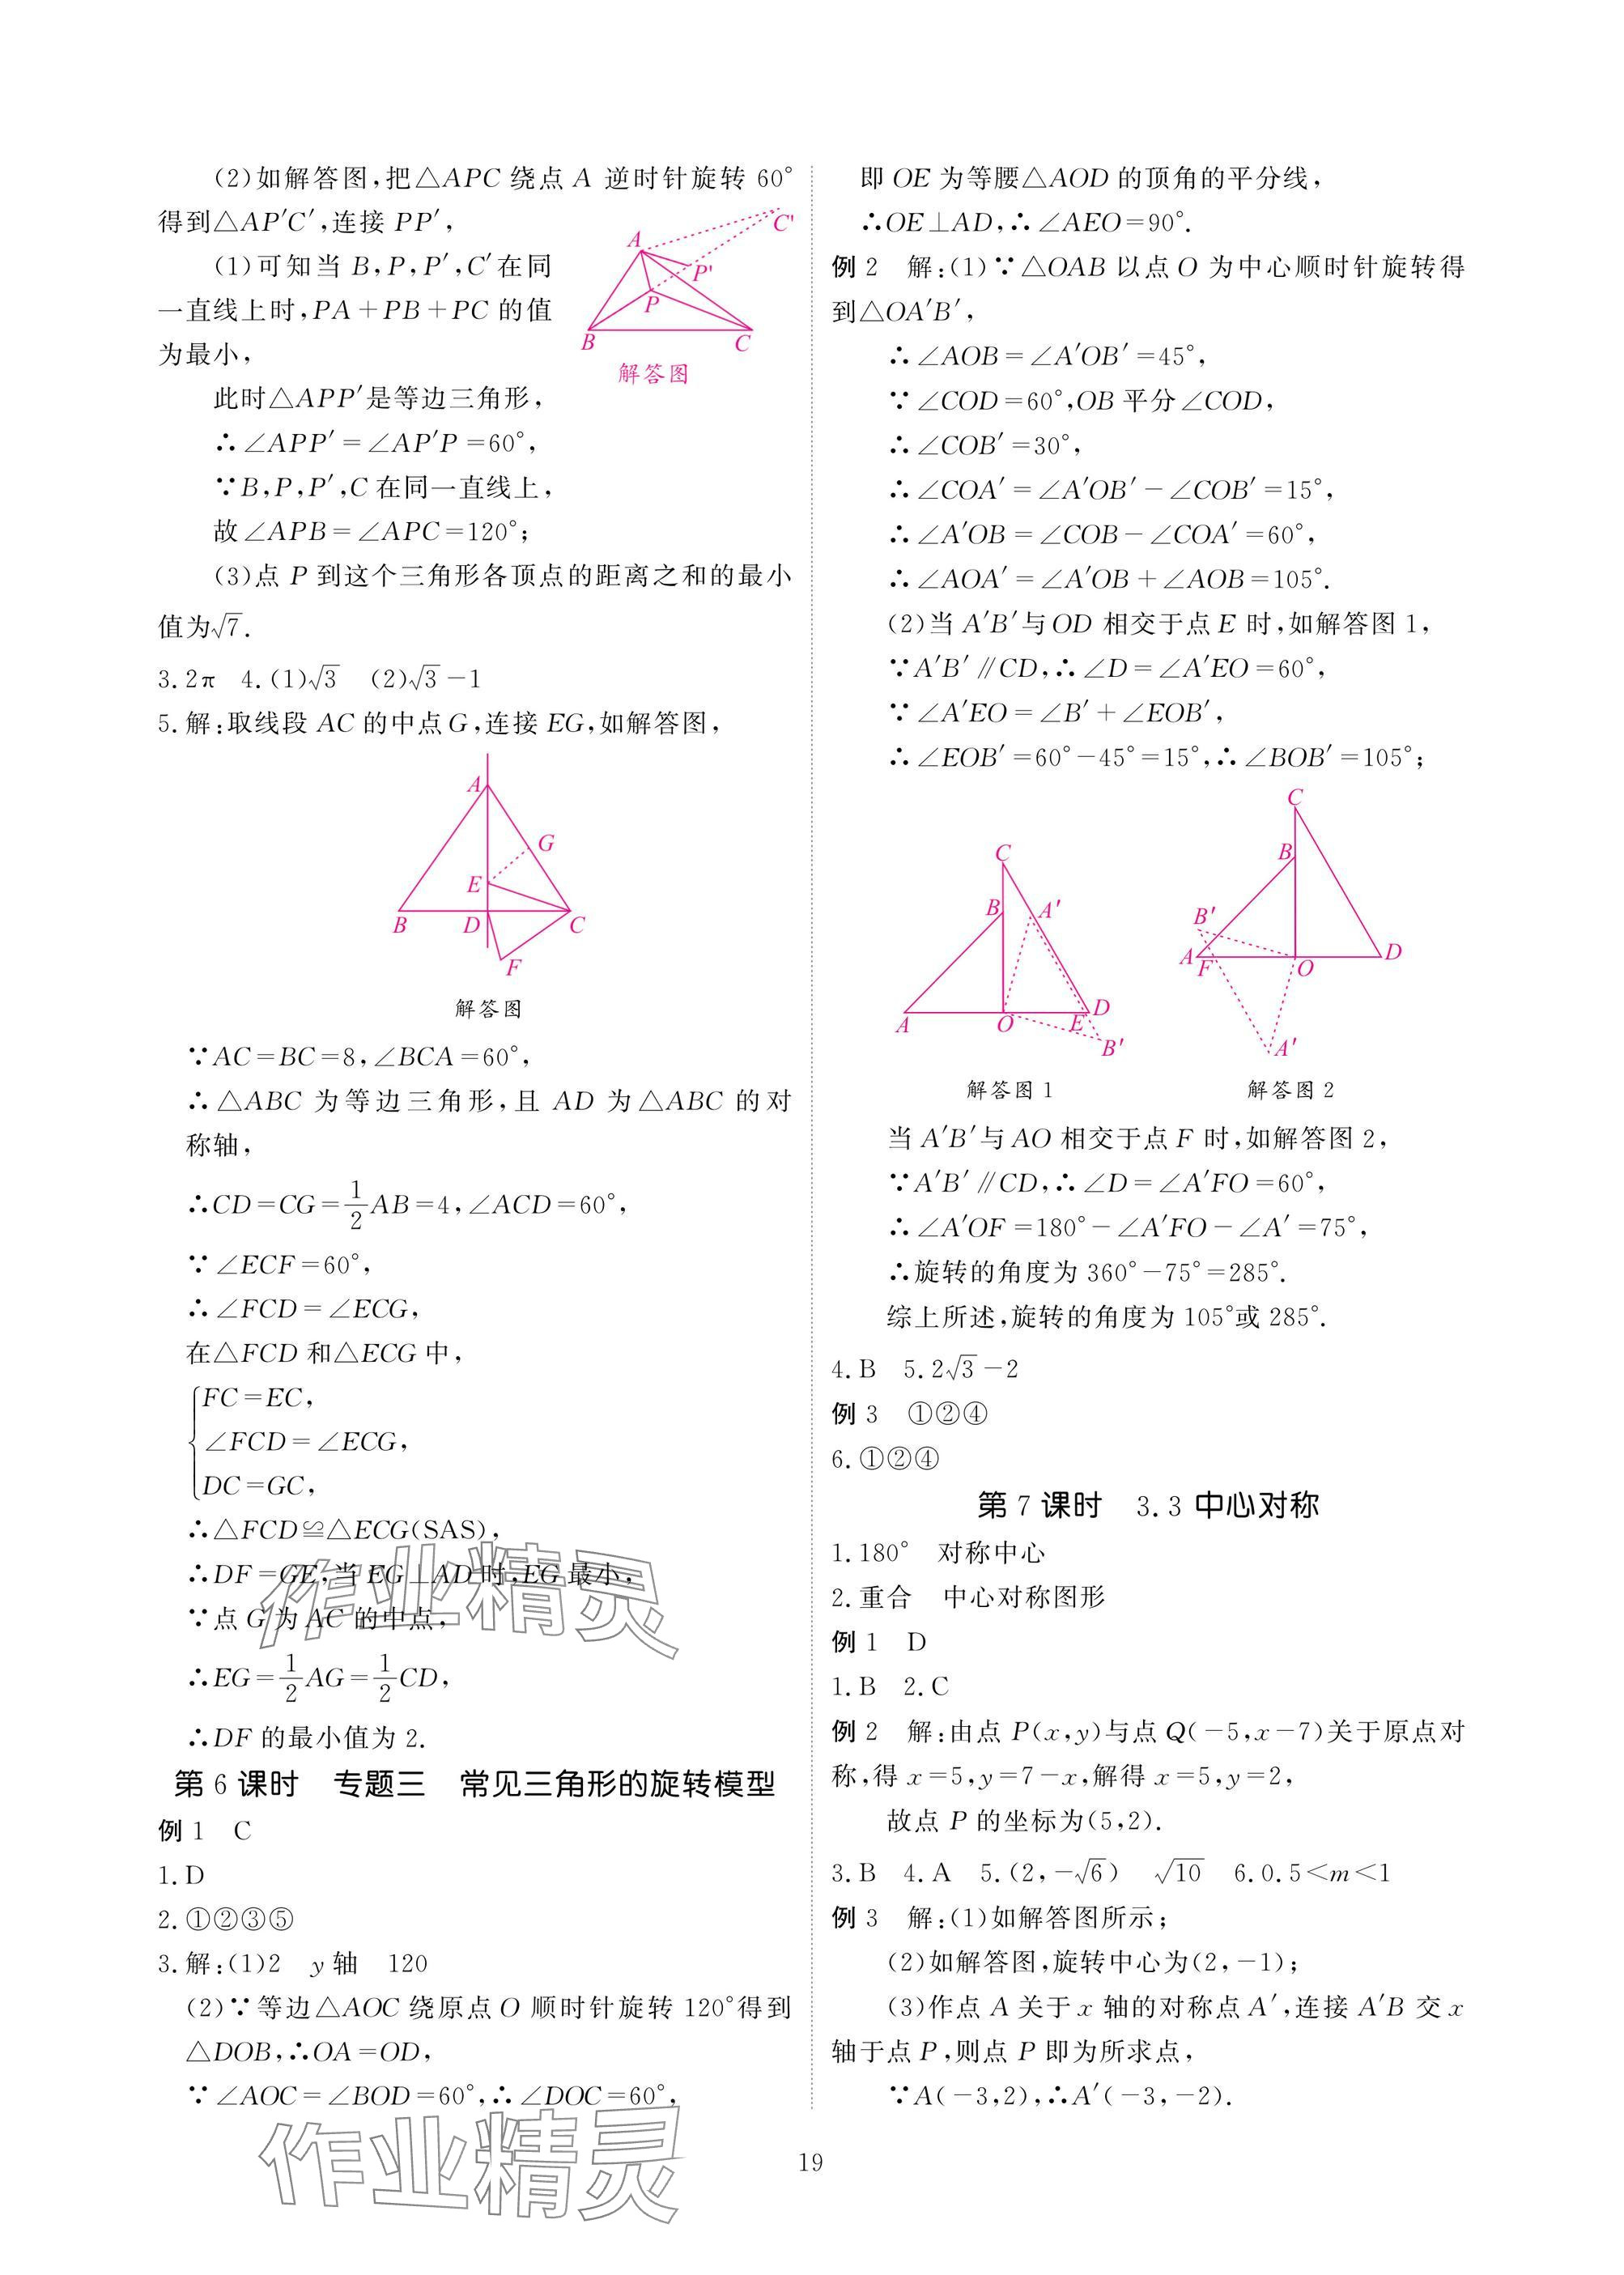 (2)如解答图,把△APC绕点A逆时针旋转60°
得到△AP′C′,连接PP′,
(1)可知当B,P,P′,C′在同
一直线上时,PA+PB+PC的值
为最小,
A
C'
P'
P
B
C
解答图
此时△APP′是等边三角形,
∴∠APP′=∠AP′P=60°,
∵B,P,P′,C在同一直线上,
故∠APB=∠APC=120°;
(3)点P到这个三角形各顶点的距离之和的最小
值为√7.
3.2π 4.(1)√3 (2)√3-1
5.解:取线段AC的中点G,连接EG,如解答图,
A
G
E
B
D
C
F
解答图
∵AC=BC=8,∠BCA=60°,
∴△ABC为等边三角形,且AD为△ABC的对
称轴,
∴CD=CG=1/2AB=4,∠ACD=60°,
∵∠ECF=60°,
∴∠FCD=∠ECG,
在△FCD和△ECG中,
{FC=EC,
∠FCD=∠ECG,
DC=GC,
∴△FCD≌△ECG(SAS),
∴DF=GE,当EG⊥AD时,EG最小,
∵点G为AC的中点,
∴EG=1/2AG=1/2CD,
∴DF的最小值为2.
第6课时 专题三 常见三角形的旋转模型
例1 C
1.D
2.①②③⑤
3.解:(1)2 y轴 120
(2)∵等边△AOC绕原点O顺时针旋转120°得到
△DOB,∴OA=OD,
∵∠AOC=∠BOD=60°,∴∠DOC=60°,
即OE为等腰△AOD的顶角的平分线,
∴OE⊥AD,∴∠AEO=90°.
例2 解:(1)∵△OAB以点O为中心顺时针旋转得
到△OA′B′,
∴∠AOB=∠A′OB′=45°,
∵∠COD=60°,OB平分∠COD,
∴∠COB′=30°,
∴∠COA′=∠A′OB′-∠COB′=15°,
∴∠A′OB=∠COB-∠COA′=60°,
∴∠AOA′=∠A′OB+∠AOB=105°.
(2)当A′B′与OD相交于点E时,如解答图1,
∵A′B′∥CD,∴∠D=∠A′EO=60°,
∵∠A′EO=∠B′+∠EOB′,
∴∠EOB′=60°-45°=15°,∴∠BOB′=105°;
C
B
A'
A
O
E
D
B'
解答图1
C
B
B'
A
F
O
D
A'
解答图2
当A′B′与AO相交于点F时,如解答图2,
∵A′B′∥CD,∴∠D=∠A′FO=60°,
∴∠A′OF=180°-∠A′FO-∠A′=75°,
∴旋转的角度为360°-75°=285°.
综上所述,旋转的角度为105°或285°.
4.B 5.2√3-2
例3 ①②④
6.①②④
第7课时 3.3中心对称
1.180° 对称中心
2.重合 中心对称图形
例1 D
1.B 2.C
例2 解:由点P(x,y)与点Q(-5,x-7)关于原点对
称,得x=5,y=7-x,解得x=5,y=2,
故点P的坐标为(5,2).
3.B 4.A 5.(2,-√6) √10 6.0.5<m<1
例3 解:(1)如解答图所示;
(2)如解答图,旋转中心为(2,-1);
(3)作点A关于x轴的对称点A′,连接A′B交x
轴于点P,则点P即为所求点,
∵A(-3,2),∴A′(-3,-2).
19
作业精灵
作业精灵